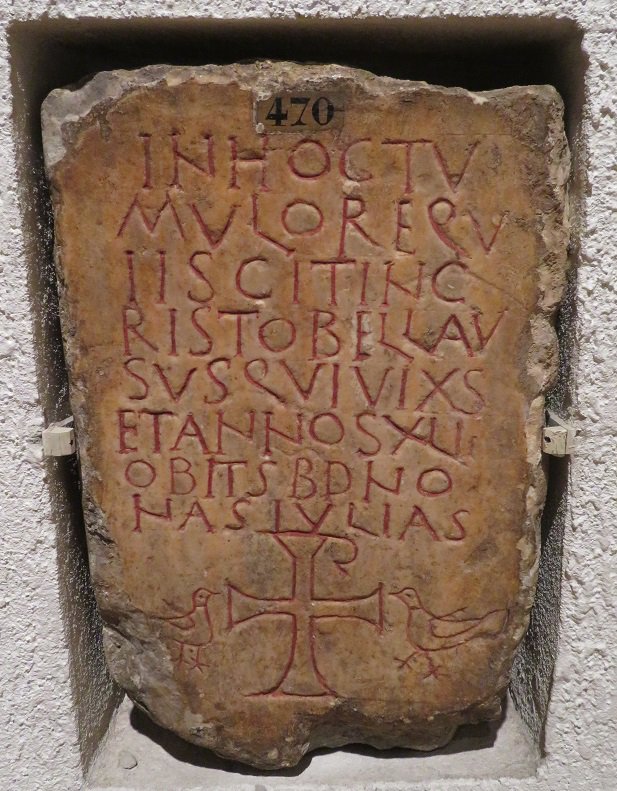 470
INHOCTV
MVLOREQV
IISCITINC
RISTOBELLAV
SVSQVIVIXS
ETANNOS
OBITSBDNO
NASIVLIAS